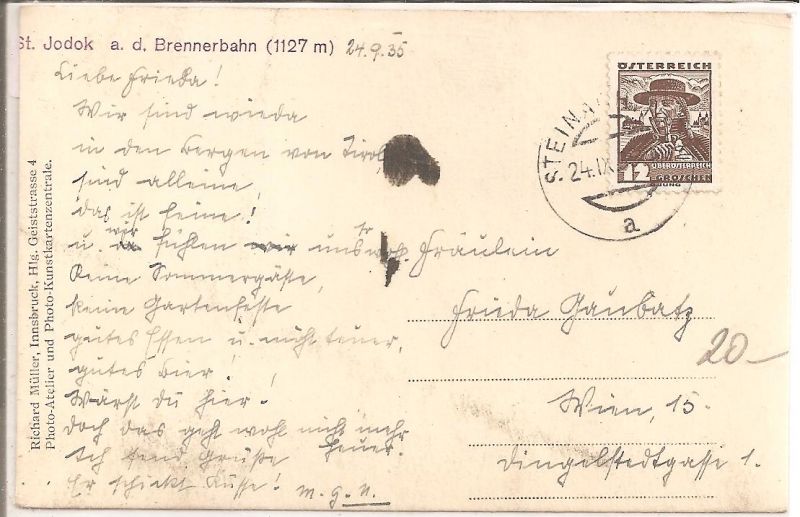 St. Jodok a. d. Brennerbahn (1127 m) 24.9.35
Liebe Frieda!
Wir sind wieda
in den Bergen von Tirol
sind alleine,
das ist feine!
u. wir fühlen uns so
Keine Sommergäste,
keine Gartenfeste
gutes Essen u. nicht teuer,
gutes Bier!
Wärst du hier!
Doch das geht wohl nicht mehr
heuer.
Ich send Grüße
Er schickt Küsse!
m. g. u.
Fräulein
Frieda Gaubatz
Wien, 15.
Dingelstedtgasse 1.
20-
ÖSTERREICH
OBERÖSTERREICH
12 GROSCHEN
STEINA
24.IX
a
Richard Müller, Innsbruck, Hlg. Geiststrasse 4
Photo-Atelier und Photo-Kunstkartenzentrale.